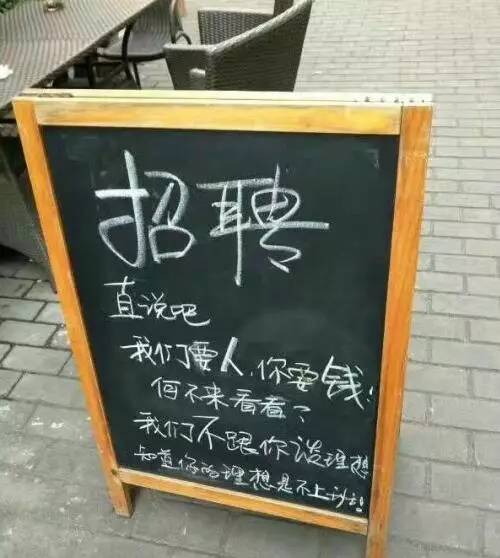 招聘
直说吧
我们要人,你要钱!
何不来看看?
我们不跟你谈理想
知道你的理想是不上班!